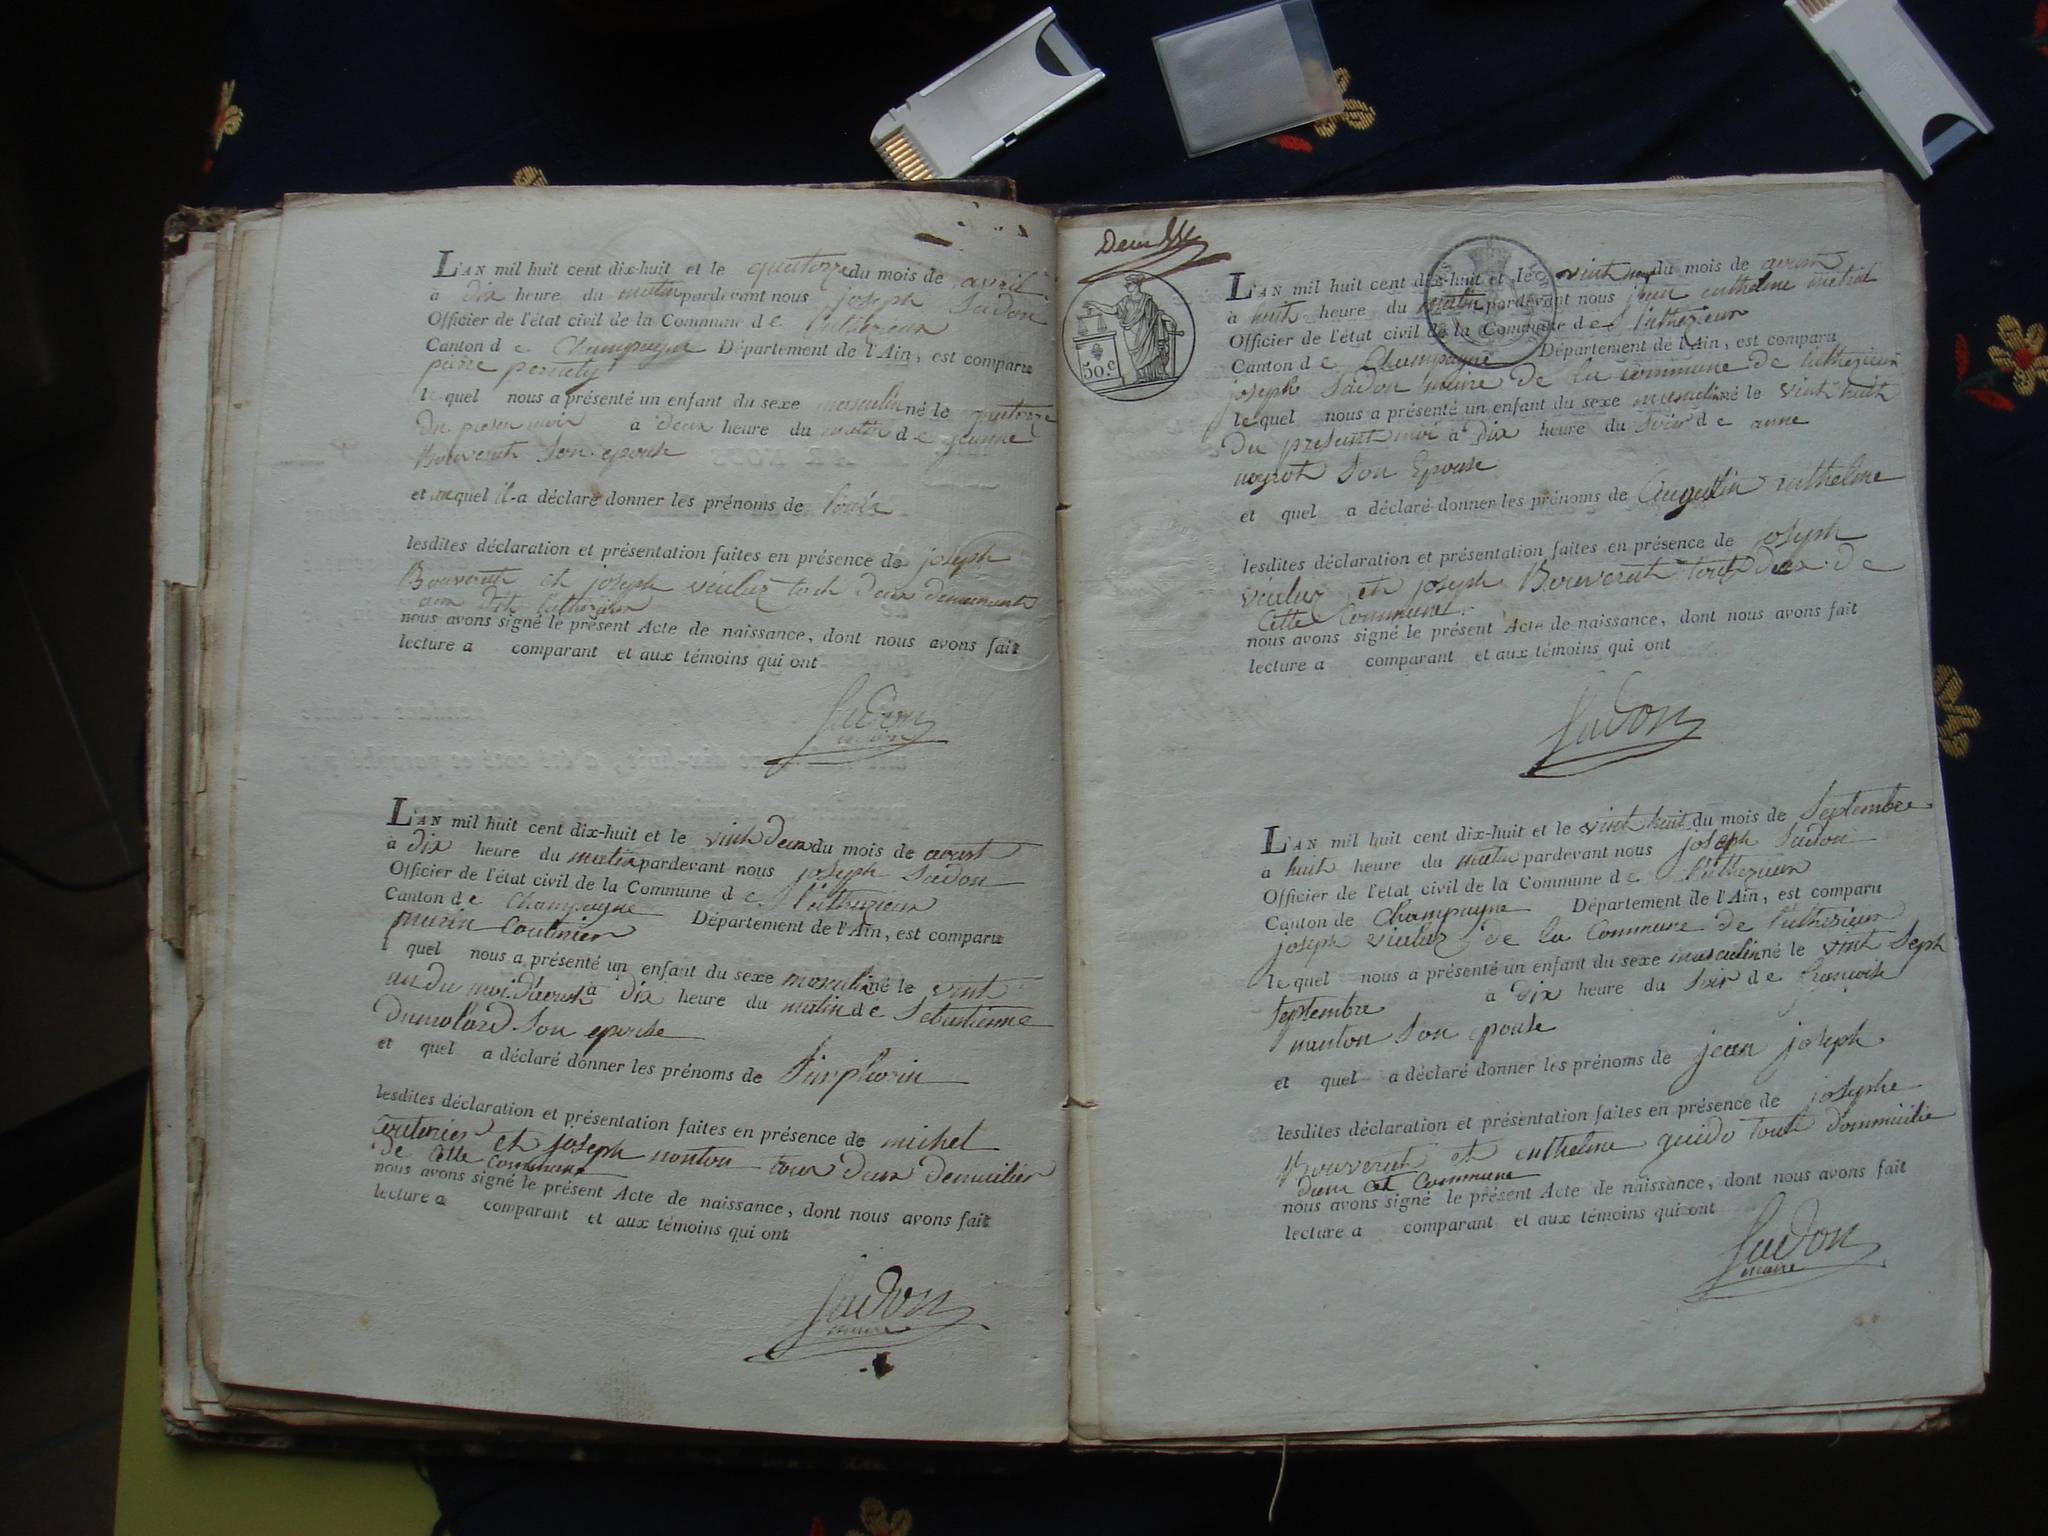 L'AN mil huit cent dix-huit et le quatorze du mois de avril
à dix heure du matin pardevant nous joseph Sudon
Officier de l'état civil de la Commune de luthezieux
Canton de Champagne Département de l'Ain, est comparu
piere
lequel nous a présenté un enfant du sexe masculin né le quatorze
du presen moi à deux heure du matin de jeanne
Bouverat son epouse
et auquel il a déclaré donner les prénoms de louis
lesdites déclaration et présentation faites en présence de joseph
Bouverat et joseph vieluz tout deux demeurants
luthezieux
nous avons signé le présent Acte de naissance, dont nous avons fait
lecture a comparant et aux témoins qui ont
Sudon
L'AN mil huit cent dix-huit et le vint deux du mois de avust
à dix heure du matin pardevant nous joseph Sudon
Officier de l'état civil de la Commune de luthezieux
Canton de Champagne Département de l'Ain, est comparu
marin Coutinier
l quel nous a présenté un enfant du sexe masculin né le vint
un du moi d'avust à dix heure du matin de Sebastienne
dumolard son epouse
et quel a déclaré donner les prénoms de Simphorin
lesdites déclaration et présentation faites en présence de michel
Coutinier et joseph nonton tous deux
de Cette Commune
nous avons signé le présent Acte de naissance, dont nous avons fait
lecture a comparant et aux témoins qui ont
Sudon
maire
50.c
L'AN mil huit cent dix-huit et le vint neuf du mois de avust
à huit heure du matin pardevant nous jean enthelme
Officier de l'état civil de la Commune de luthezieux
Canton de Champagne Département de l'Ain, est comparu
joseph Sudon maire de la commune de luthezieux
lequel nous a présenté un enfant du sexe masculin né le vint huit
du present moi à dix heure du soir de anne
son Epouse
et quel a déclaré donner les prénoms de Augustin enthelme
lesdites déclaration et présentation faites en présence de joseph
vieluz et joseph Bouverat tout deux de
Cette Commune
nous avons signé le présent Acte de naissance, dont nous avons fait
lecture a comparant et aux témoins qui ont
Sudon
L'AN mil huit cent dix-huit et le vint huit du mois de Septembre
à huit heure du matin pardevant nous joseph Sudon
Officier de l'état civil de la Commune de luthezieux
Canton de Champagne Département de l'Ain, est comparu
joseph vieluz de la Commune de luthezieux
lequel nous a présenté un enfant du sexe masculin né le vint Sept
Septembre à dix heure du soir de francoise
son epouse
et quel a déclaré donner les prénoms de jean joseph
lesdites déclaration et présentation faites en présence de josephe
Bouverat et enthelme guido tout
Commune
nous avons signé le présent Acte de naissance, dont nous avons fait
lecture a comparant et aux témoins qui ont
Sudon
maire